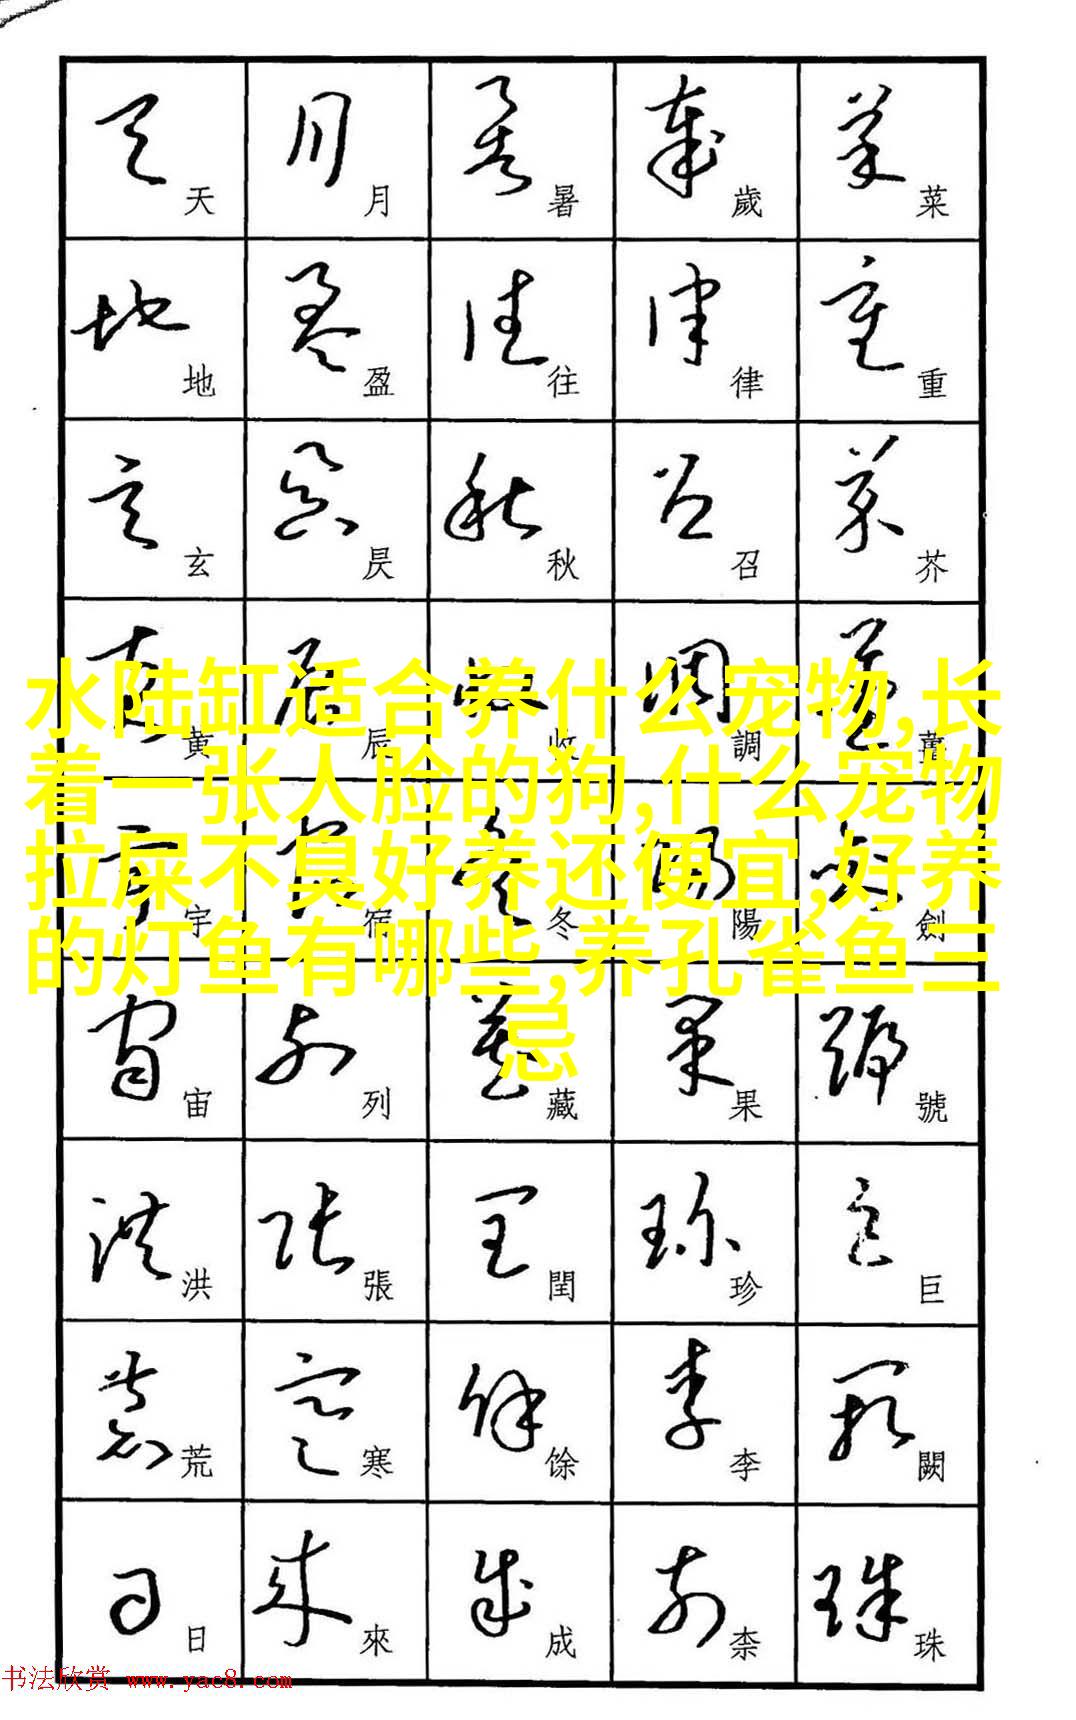 天 月 暑 歲 菜
地 盈 往 律 重
玄 昃 秋 召 芥
黄 辰 收 調 薑
水陆缸适合养什么宠物,长
着一张人脸的狗,什么宠物
拉屎不臭好养还便宜,好养
的灯鱼有哪些,养孔雀鱼三
忌
宇 宿 冬 陽 劍
宙 列 藏 果 號
洪 張 閏 珍 巨
荒 寒 馀 李 闕
日 來 成 柰 珠
书法欣赏 www.yac8.com